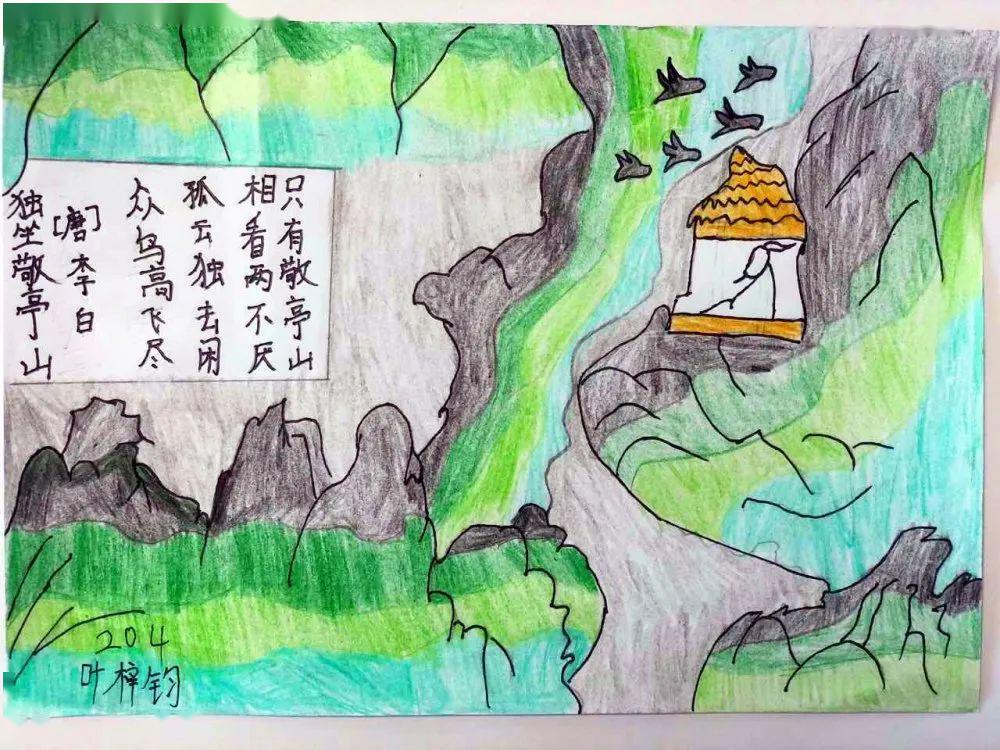 独坐敬亭山
[唐]李白
众鸟高飞尽
孤云独去闲
相看两不厌
只有敬亭山
204
叶梓钧